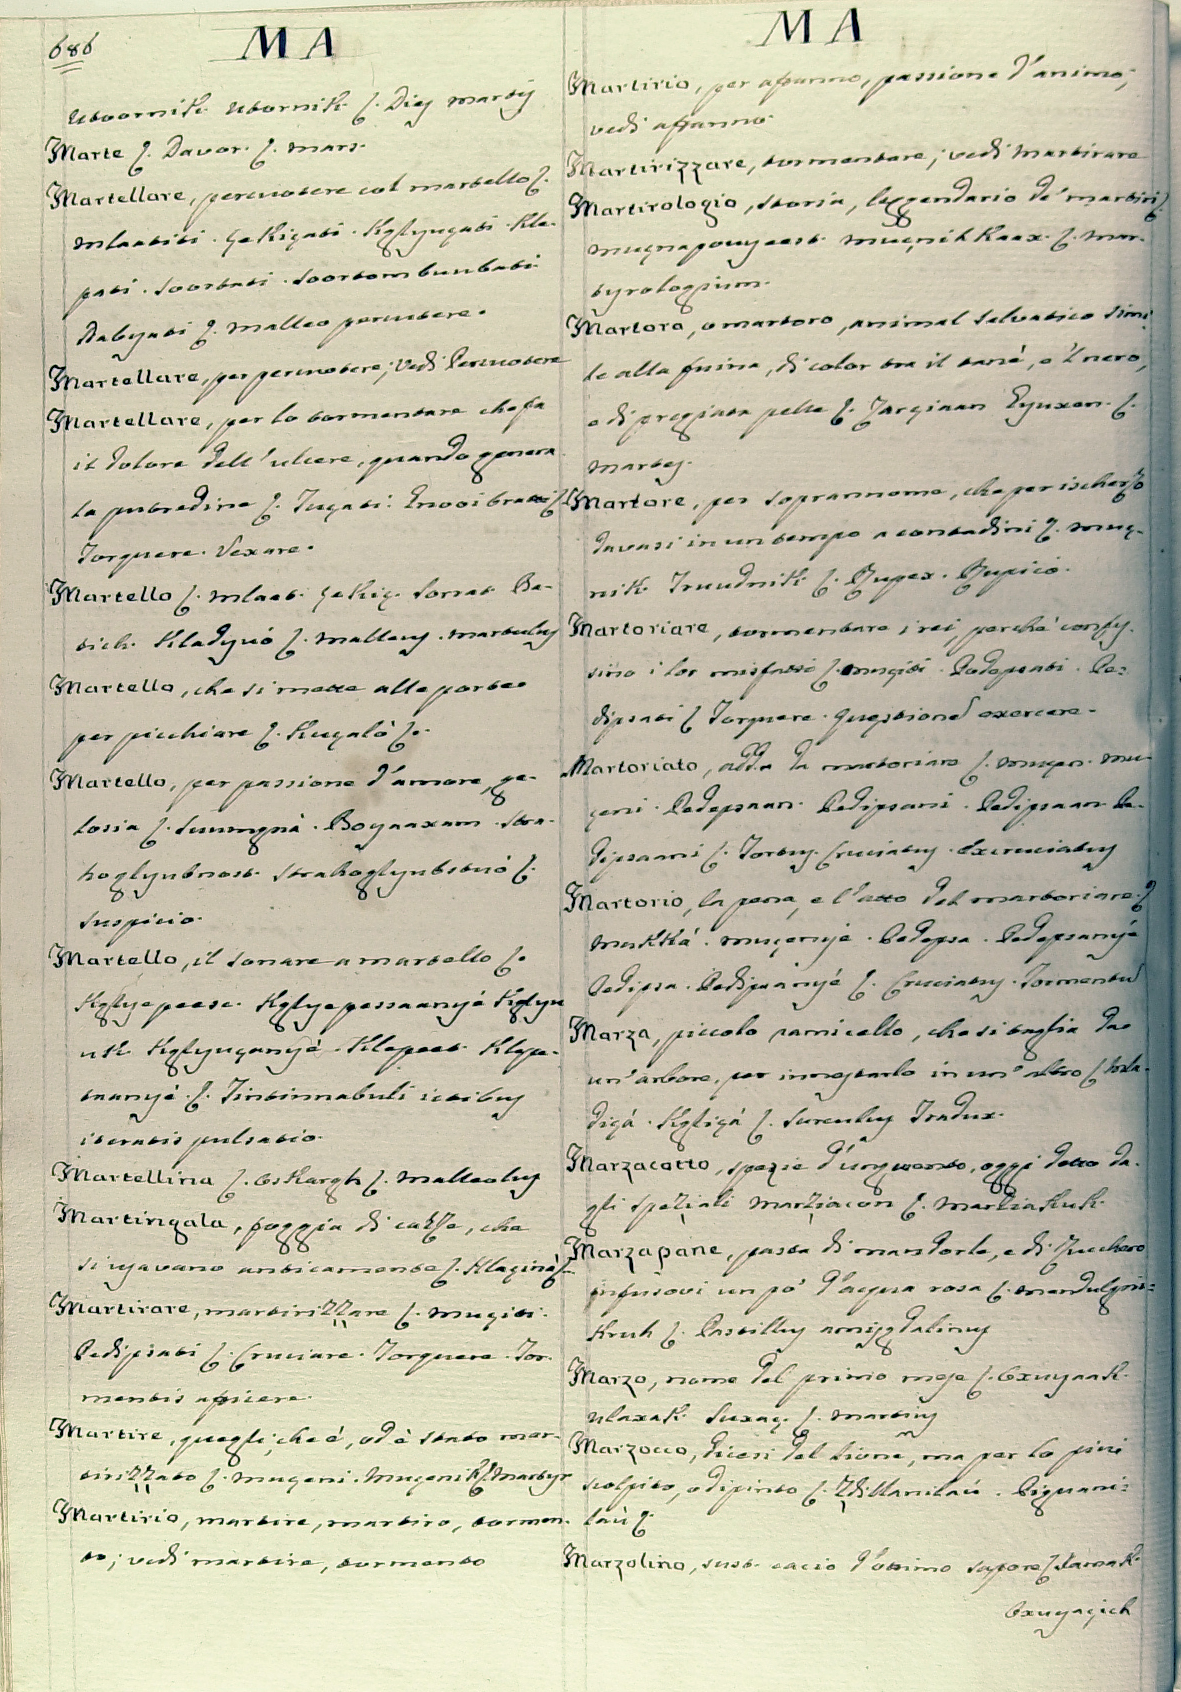 686
MA
Utvornik Utornik ſ. Dies martis
Marte ſ. Davor. ſ. mars.
Martellare, percuotere col martello ſ.
mlaatiti. çekiçati. Kgljuçati. Kle-
pati. tvortati. tvortom buubati.
Martellare, per percuotere; vedi Percuotere
Martellare, per lo tormentare che fa
il dolore dell'ulcere, quando genera
la putredine ſ. Tuçati.
Torquere. Vexare.
Martello ſ. mlaat. çekiç. Ba-
tich. Kladyvó ſ. malleus. martulus
Martello, che si mette alle porte
per picchiare ſ. Kuçalò ſ.
Martello, per passione d'amore, ge-
losia ſ. Suumgnà. Boyaaxam. Stra-
hoglyubnost. Strahoglyubstvó ſ.
Suspicio.
Martello, il sonare a martello ſ.
Kglyepeese. Kglyepessaanyé Kglyu
uk Kglyuçanyé. Klepeet. Klepe-
tanyé. ſ. Tintinnabuli ictibus
iteratis pulsatio.
Martellina ſ. Oskargh ſ. malleolus
Martingala, foggia di calze, che
si usavano anticamente ſ. Klaçina ſ.
Martirare, martirizzare ſ. muçiti.
Pedipsati ſ. Cruciare. Torquere. Tor-
mentis afficere.
Martire, quegli, che è, od è stato mar-
tirizzato ſ. muçeni. Muçenik ſ. Martyr
Martirio, martire, martiro, tormen-
to; vedi martire, tormento
MA
Martirio, per affanno, passione d'animo;
vedi affanno.
Martirizzare, tormentare; vedi Martirare
Martirologio, storia, leggendario de' martiri ſ.
muçnapovyeest muçnikkaax. ſ. Mar-
tyrologium.
Martora, o martoro, animal selvatico simi-
le alla fuina, di color tra il tanè, e 'l nero,
e di pregiata pelle ſ.
martes.
Martore, per soprannome, che per ischerzo
davasi in un tempo a contadini ſ. muç-
nik Truudnik ſ.
Martoriare, tormentare i rei perchè confes-
sino i lor misfatti ſ. muçiti. Pedepsati. Pe-
dipsati ſ. Torquere. Questioned exercere.
Martoriato, add. da martoriare ſ. muçen. mu-
çeni. Pedepsaan. Pedipsani. Pedipsaan Pe-
dipsaani ſ. Tortus. Cruciatus. Excruciatus
Martorio, la pena, e l'atto del martoriare ſ.
mukká. muçenyé. Pedepsa. Pedepsanyé
Pedipsa. Pedipsanyé ſ. Cruciatus. Tormentū
Marza, piccolo ramicello, che si taglia da
un' arbore, per innestarlo in un' altro ſ. mla-
diçá. Kgliçá ſ. Surculus Tradux.
Marzacotto, spezie d'unguento, oggi detto da-
gli speziali marziacon ſ. marciakuk.
Marzapane, pasta di mandorle, e di zucchero
infusovi un pò d'acqua rosa ſ. mendulgni-
kruh ſ. Pastillus amigdalinus
Marzo, nome del primo mese ſ. Oxuyaak.
ulaxak Suxaç. ſ. martius
Marzocco, dicesi del Lione, ma per lo più
scolpito, o dipinto ſ.
laú ſ.
Marzolino, sust. cacio d'ottimo sapore ſ.
Oxuyaçich